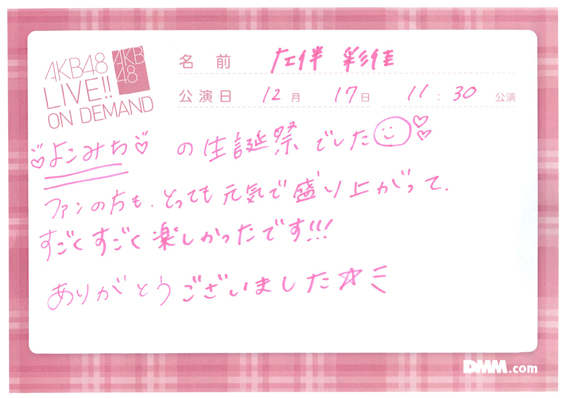 AKB48
LIVE!!
ON DEMAND
AKB
48
名前 左伴 彩佳
公演日 12月 17日 11:30 公演
♡よこみち♡ の生誕祭でした
ファンの方も、とっても元気で盛り上がって、
すごくすごく楽しかったです!!!
ありがとうございました☆ミ
DMM.com